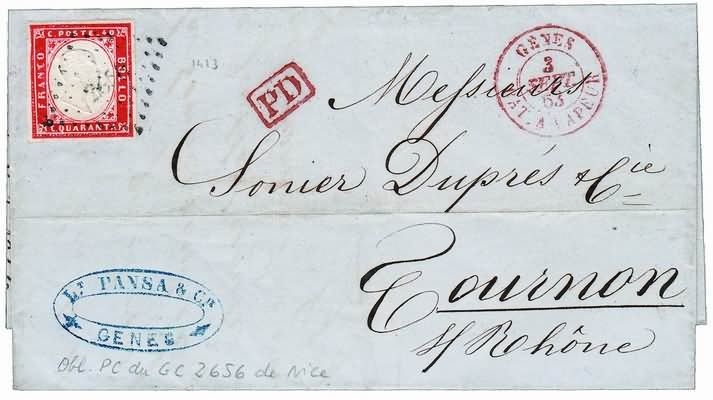 C. POSTE. 40
FRANCO
BOLLO
C. QUARANTA
1413
PD
GENES
3
SEPT
63
BAT. A VAPEUR
Messieurs
Sonier Duprés & Cie
Tournon
s/ Rhône
Lt. PANSA & Cie
GENES
Obl. PC du GC 2656 de Nice